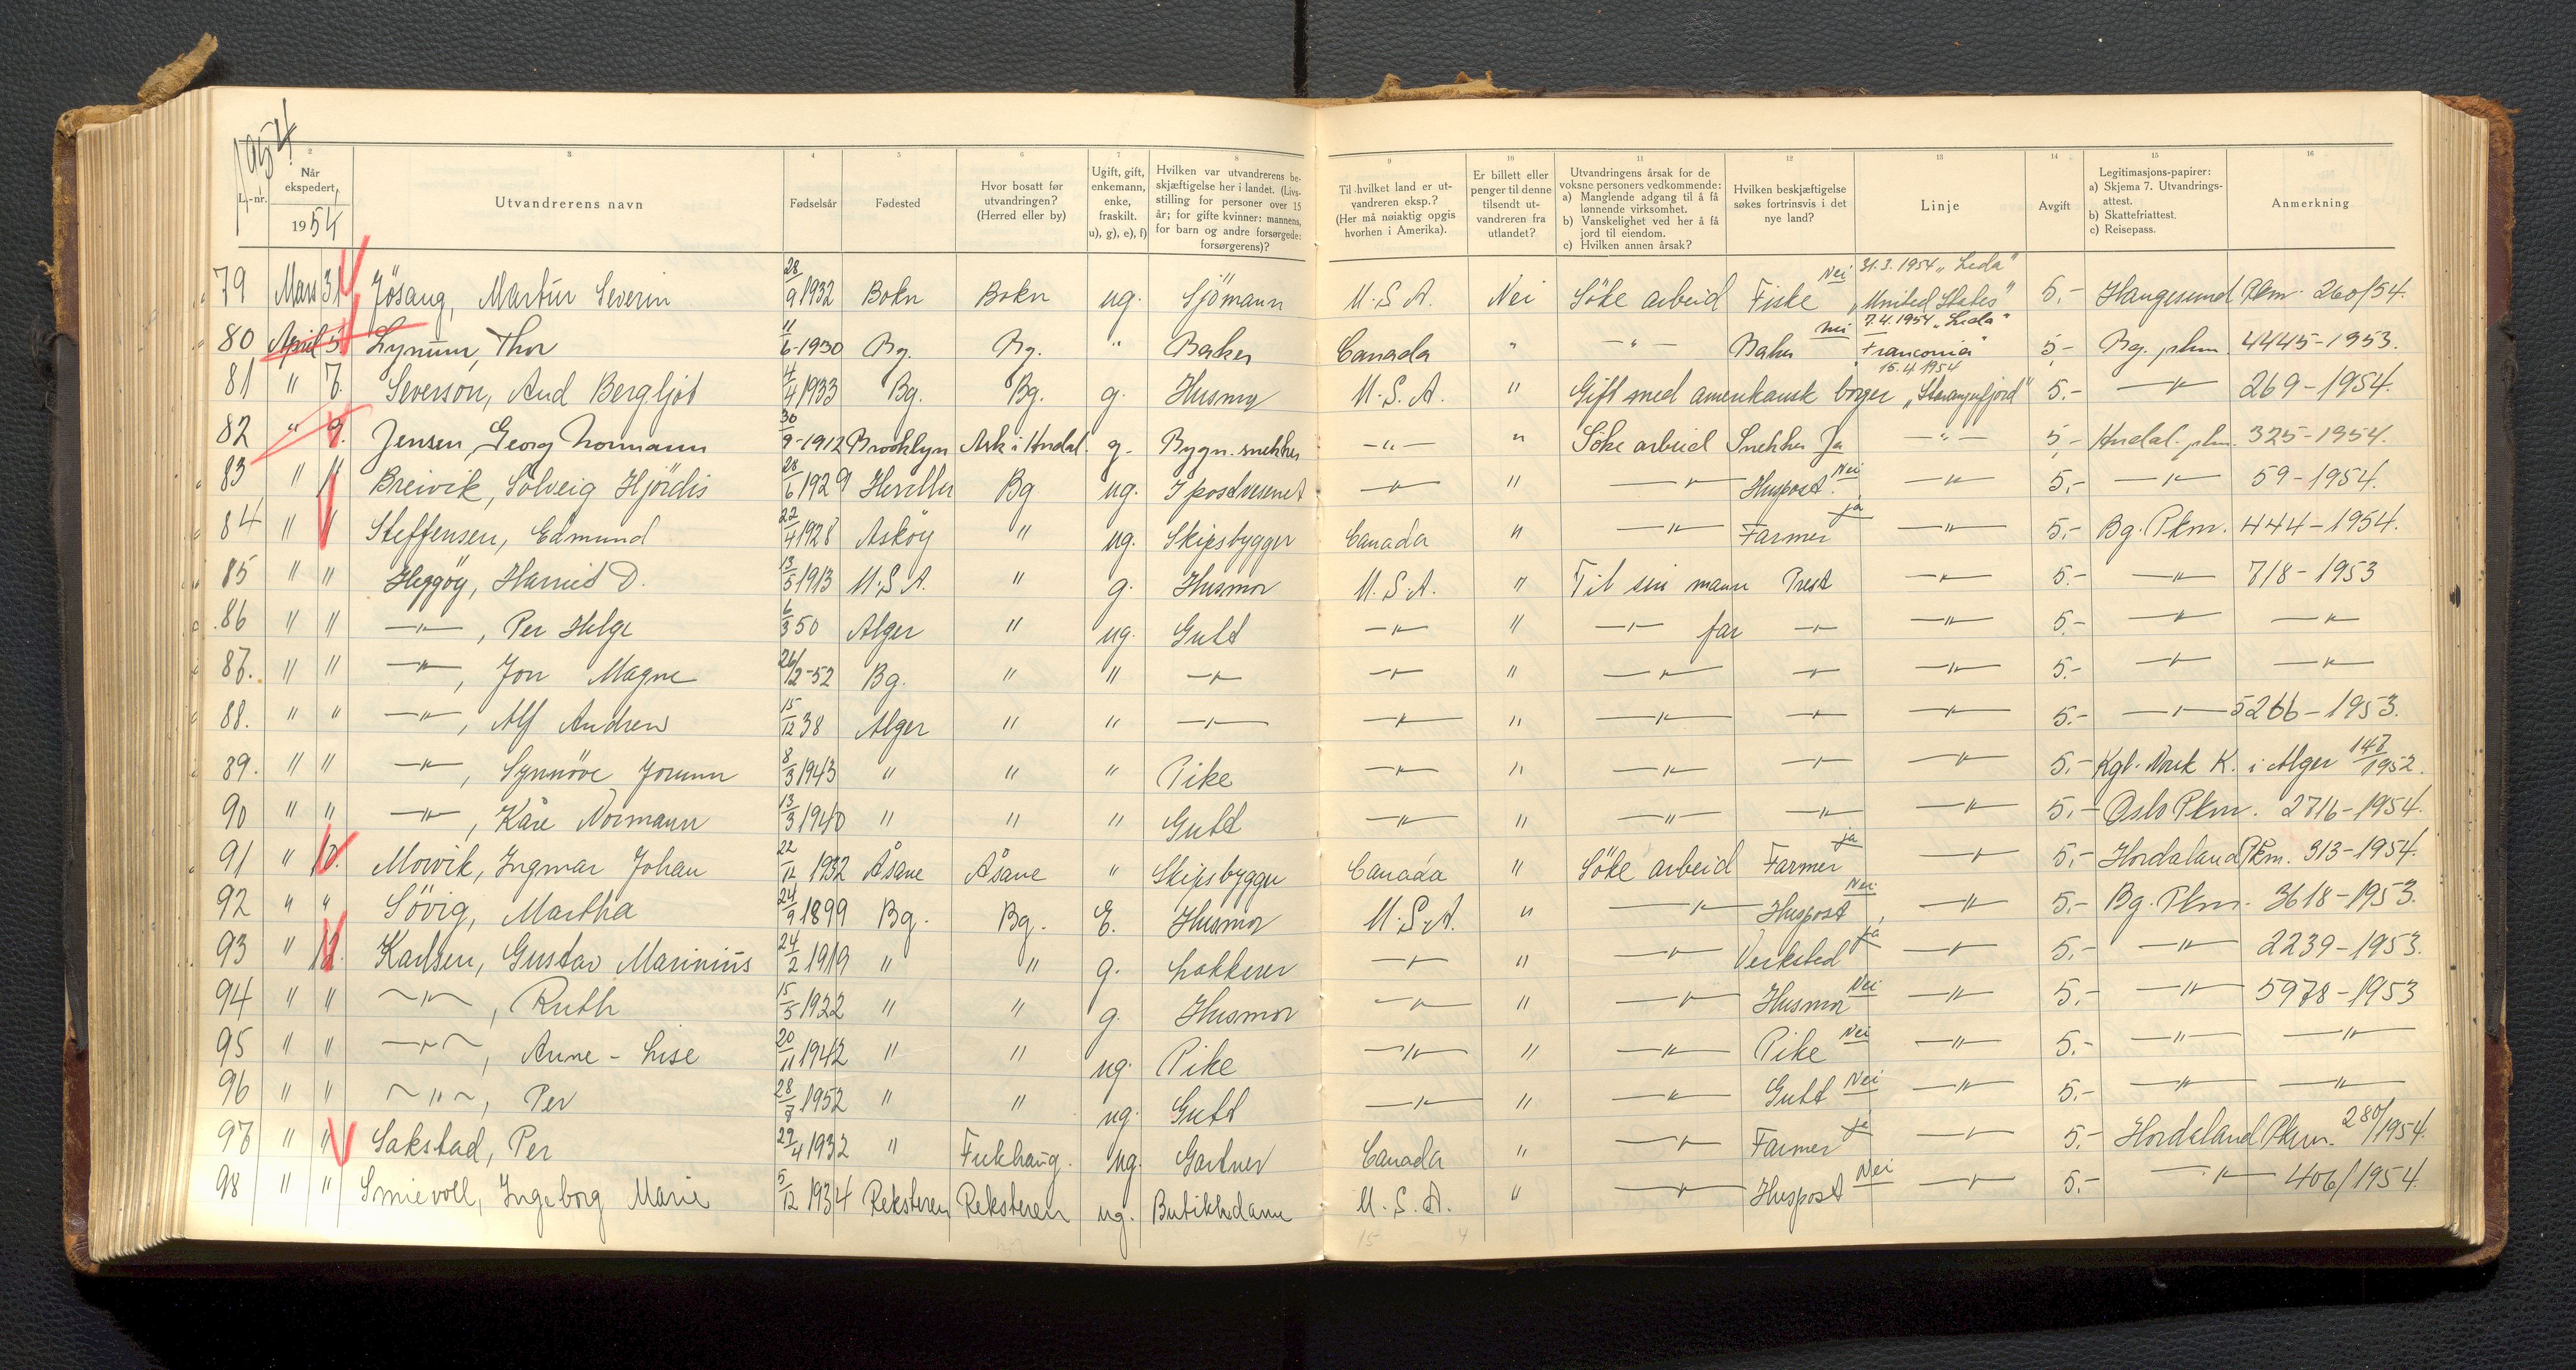 1954
L.-nr.
2 Når ekspedert, 1954
3 Utvandrerens navn
4 Fødselsår
5 Fødested
6 Hvor bosatt før utvandringen? (Herred eller by)
7 Ugift, gift, enkemann, enke, fraskilt. u), g), e), f)
8 Hvilken var utvandrerens beskjæftigelse her i landet. (Livsstilling for personer over 15 år; for gifte kvinner: mannens, for barn og andre forsørgede: forsørgerens)?
9 Til hvilket land er utvandreren eksp.? (Her må nøiaktig opgis hvorhen i Amerika).
10 Er billett eller penger til denne tilsendt utvandreren fra utlandet?
11 Utvandringens årsak for de voksne personers vedkommende: a) Manglende adgang til å få lønnende virksomhet. b) Vanskelighet ved her å få jord til eiendom. c) Hvilken annen årsak?
12 Hvilken beskjæftigelse søkes fortrinsvis i det nye land?
13 Linje
14 Avgift
15 Legitimasjons-papirer: a) Skjema 7. Utvandringsattest. b) Skattefriattest. c) Reisepass.
16 Anmerkning
79 Mars 31 Jösang, Martin Severin 28/9 1932 Bokn Bokn ug. Sjömann U.S.A. Nei Söke arbeid Fiske Nei 31.3.1954 „Leda" „United States" 5.- Haugesund Pkm. 260/54.
80 April 5 Lynum, Thor 11/6-1930 Bg. Bg. " Baker Canada " -"- Baker Nei 7.4.1954 „Leda" „Franconia" 5.- Bg. pkm. 4445-1953.
81 " 7. Severson, Aud Bergljot 4/4 1933 Bg. Bg. g. Husmor U.S.A. " Gift med amerikansk borger 15.4.1954 „Stavangerfjord" 5.- -"- 269-1954.
82 " 9. Jensen, Georg Normann 30/9-1912 Brooklyn Ask i Hordal. g. Bygn.snekker -"- " Söke arbeid Snekker Ja -"- 5.- Hordal. pkm. 325-1954.
83 " " Breivik, Solveig Hjördis 28/6 1929 Herdla Bg ug. I postvesenet -"- " -"- Huspost. Nei -"- 5.- -"- 59-1954.
84 " " Steffensen, Edmund 22/4 1928 Asköy " ug. Skipsbygger Canada " -"- Farmer ja -"- 5.- Bg. Pkm. 444-1954.
85 " " Heggöy, D. 13/5 1913 U.S.A. " g. Husmor U.S.A. " Til sin mann Prest -"- 5.- -"- 718-1953
86 " " -"-, Per Helge 6/3 50 Alger " ug. Gutt -"- " -"- far -"- -"- 5.- -"- -"-
87. " " -"-, Jon Magne 26/2-52 Bg. " " -"- -"- " -"- -"- -"- 5.- -"- -"-
88. " " -"-, Alf Andreas 15/12 38 Alger " " -"- -"- " -"- -"- -"- 5.- -"- 5266-1953.
89. " " -"-, Synnöve Jorunn 8/3 1943 " " " Pike -"- " -"- -"- -"- 5.- Kgl. Norsk K. i Alger 147/1952.
90 " " -"-, Kåre Normann 13/3 1940 " " " Gutt -"- " -"- -"- -"- 5.- Oslo Pkm. 2716-1954.
91 " 10. Morvik, Ingmar Johan 22/12 1932 Åsane Åsane " Skipsbygger Canada " Söke arbeid Farmer ja -"- 5.- Hordaland Pkm. 313-1954.
92 " " Sövig, Martha 24/9 1899 Bg. Bg. E. Husmor U.S.A. " -"- Huspost Nei -"- 5.- Bg. Pkm. 3618-1953.
93 " 12. Karlsen, Gustav Marinius 24/2 1919 " " g. Lakkerer -"- " -"- Verksted ja -"- 5.- -"- 2239-1953.
94 " " -"-, Ruth 15/5 1922 " " g. Husmor -"- " -"- Husmor Nei -"- 5.- -"- 5978-1953
95 " " -"-, Anne-Lise 20/11 1942 " " ug. Pike -"- " -"- Pike Nei -"- 5.- -"- -"-
96 " " -"-, Per 28/8 1952 " " ug. Gutt -"- " -"- Gutt Nei -"- 5.- -"- -"-
97 " " Sakstad, Per 29/4 1932 " ug. Gartner Canada " -"- Farmer ja -"- 5.- Hordaland Pkm. 280/1954.
98 " " Smievoll, Ingeborg Marie 5/12 1934 Reksteren Reksteren ug. Butikkdame U.S.A. " -"- Huspost Nei -"- 5.- -"- 406/1954.
15 4